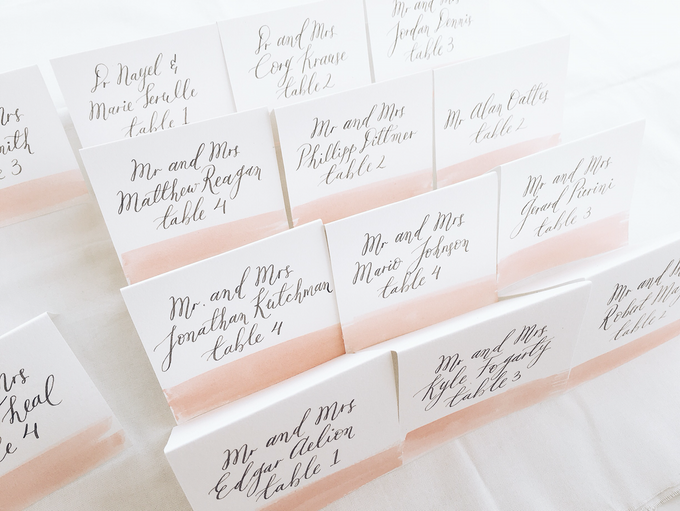 Dr Nayel &
Marie Serville
table 1
Dr and Mrs
Cory Krause
table 2
Mr and Mrs
Jordan Dennis
table 3
Mrs
3
Mr and Mrs
Matthew Reagan
table 4
Mr and Mrs
Phillipp Dittmer
table 2
Mr Alan Oaltes
table 2
Mr. and Mrs
Jonathan Kutchman
table 4
Mr and Mrs
Mario Johnson
table 4
Mr and Mrs
Gerard Pierini
table 3
Mrs
4
Mr and Mrs
Edgar Aelion
table 1
Mr and Mrs
Kyle Fogarty
table 3
Mr and
Robert
table 2